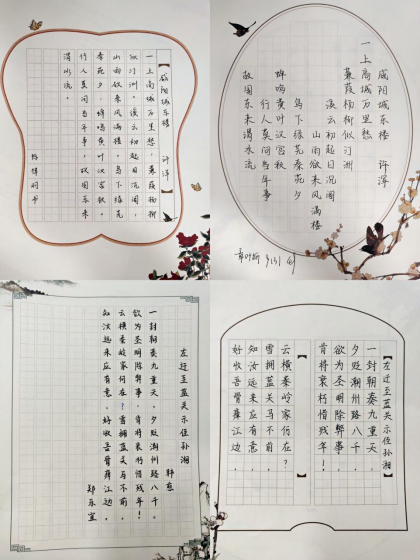 【咸阳城东楼 许浑】
一上高城万里愁，蒹葭杨柳
似汀洲。溪云初起日沉阁，
山雨欲来风满楼。鸟下绿芜
秦苑夕，蝉鸣黄叶汉宫秋。
行人莫问当年事，故国东来
渭水流。
咸阳城东楼 许浑
一上高城万里愁
蒹葭杨柳似汀洲
溪云初起日沉阁
山雨欲来风满楼
鸟下绿芜秦苑夕
蝉鸣黄叶汉宫秋
行人莫问当年事
故国东来渭水流
左迁至蓝关示侄孙湘
韩愈
一封朝奏九重天，夕贬潮州路八千。
欲为圣明除弊事，肯将衰朽惜残年！
云横秦岭家何在？雪拥蓝关马不前。
知汝远来应有意，好收吾骨瘴江边。
郑乐宜
【左迁至蓝关示侄孙湘】
一封朝奏九重天，
夕贬潮州路八千。
欲为圣明除弊事，
肯将衰朽惜残年！
云横秦岭家何在？
雪拥蓝关马不前。
知汝远来应有意，
好收吾骨瘴江边。